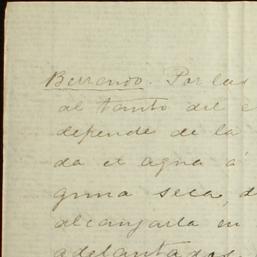 Berrendo. Por las
al tanto del e
depende de la
da el agua á
guna seca, d
alcanzarla en
adelantados